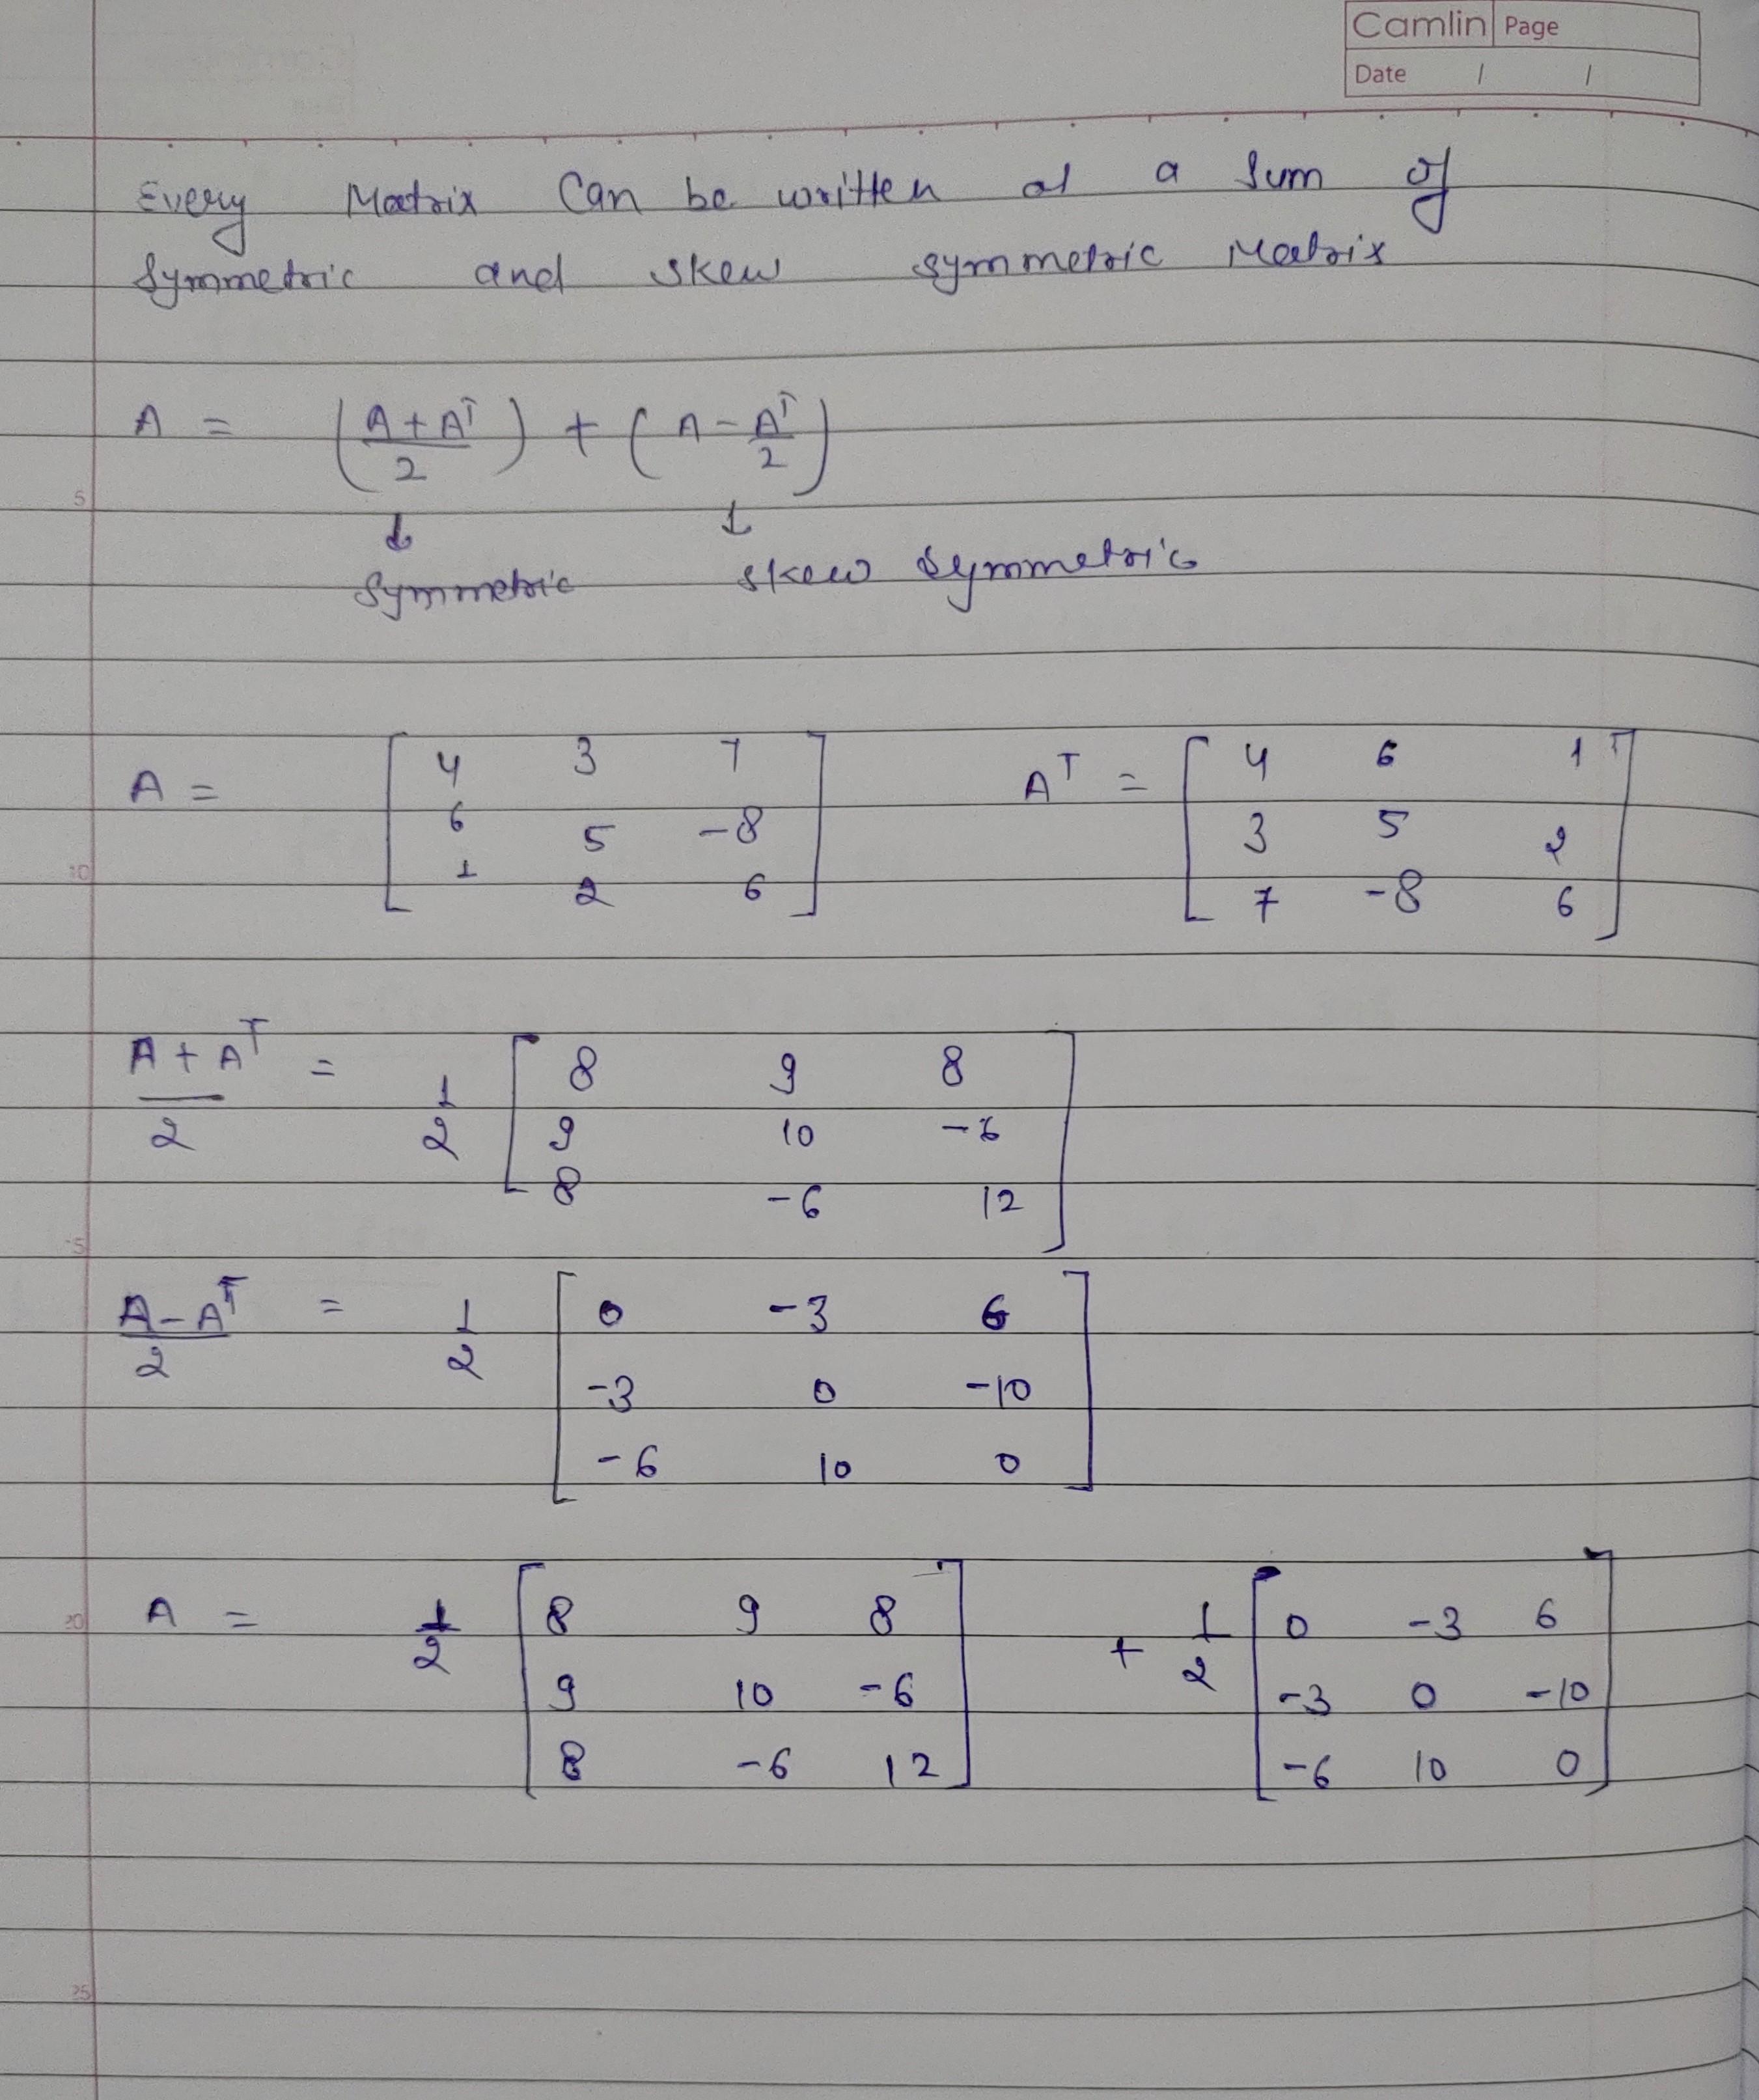 Camlin Page
Date / /
Every Matrix Can be written as a Sum of
Symmetric and skew symmetric Matrix
A = (A + Aᵀ / 2) + (A - Aᵀ / 2)
↓ ↓
Symmetric skew symmetric
5
A = [4 3 7; 6 5 -8; 1 2 6] Aᵀ = [4 6 1; 3 5 2; 7 -8 6]
10
A + Aᵀ / 2 = 1/2 [8 9 8; 9 10 -6; 8 -6 12]
15
A - Aᵀ / 2 = 1/2 [0 -3 6; -3 0 -10; -6 10 0]
20
A = 1/2 [8 9 8; 9 10 -6; 8 -6 12] + 1/2 [0 -3 6; -3 0 -10; -6 10 0]
25